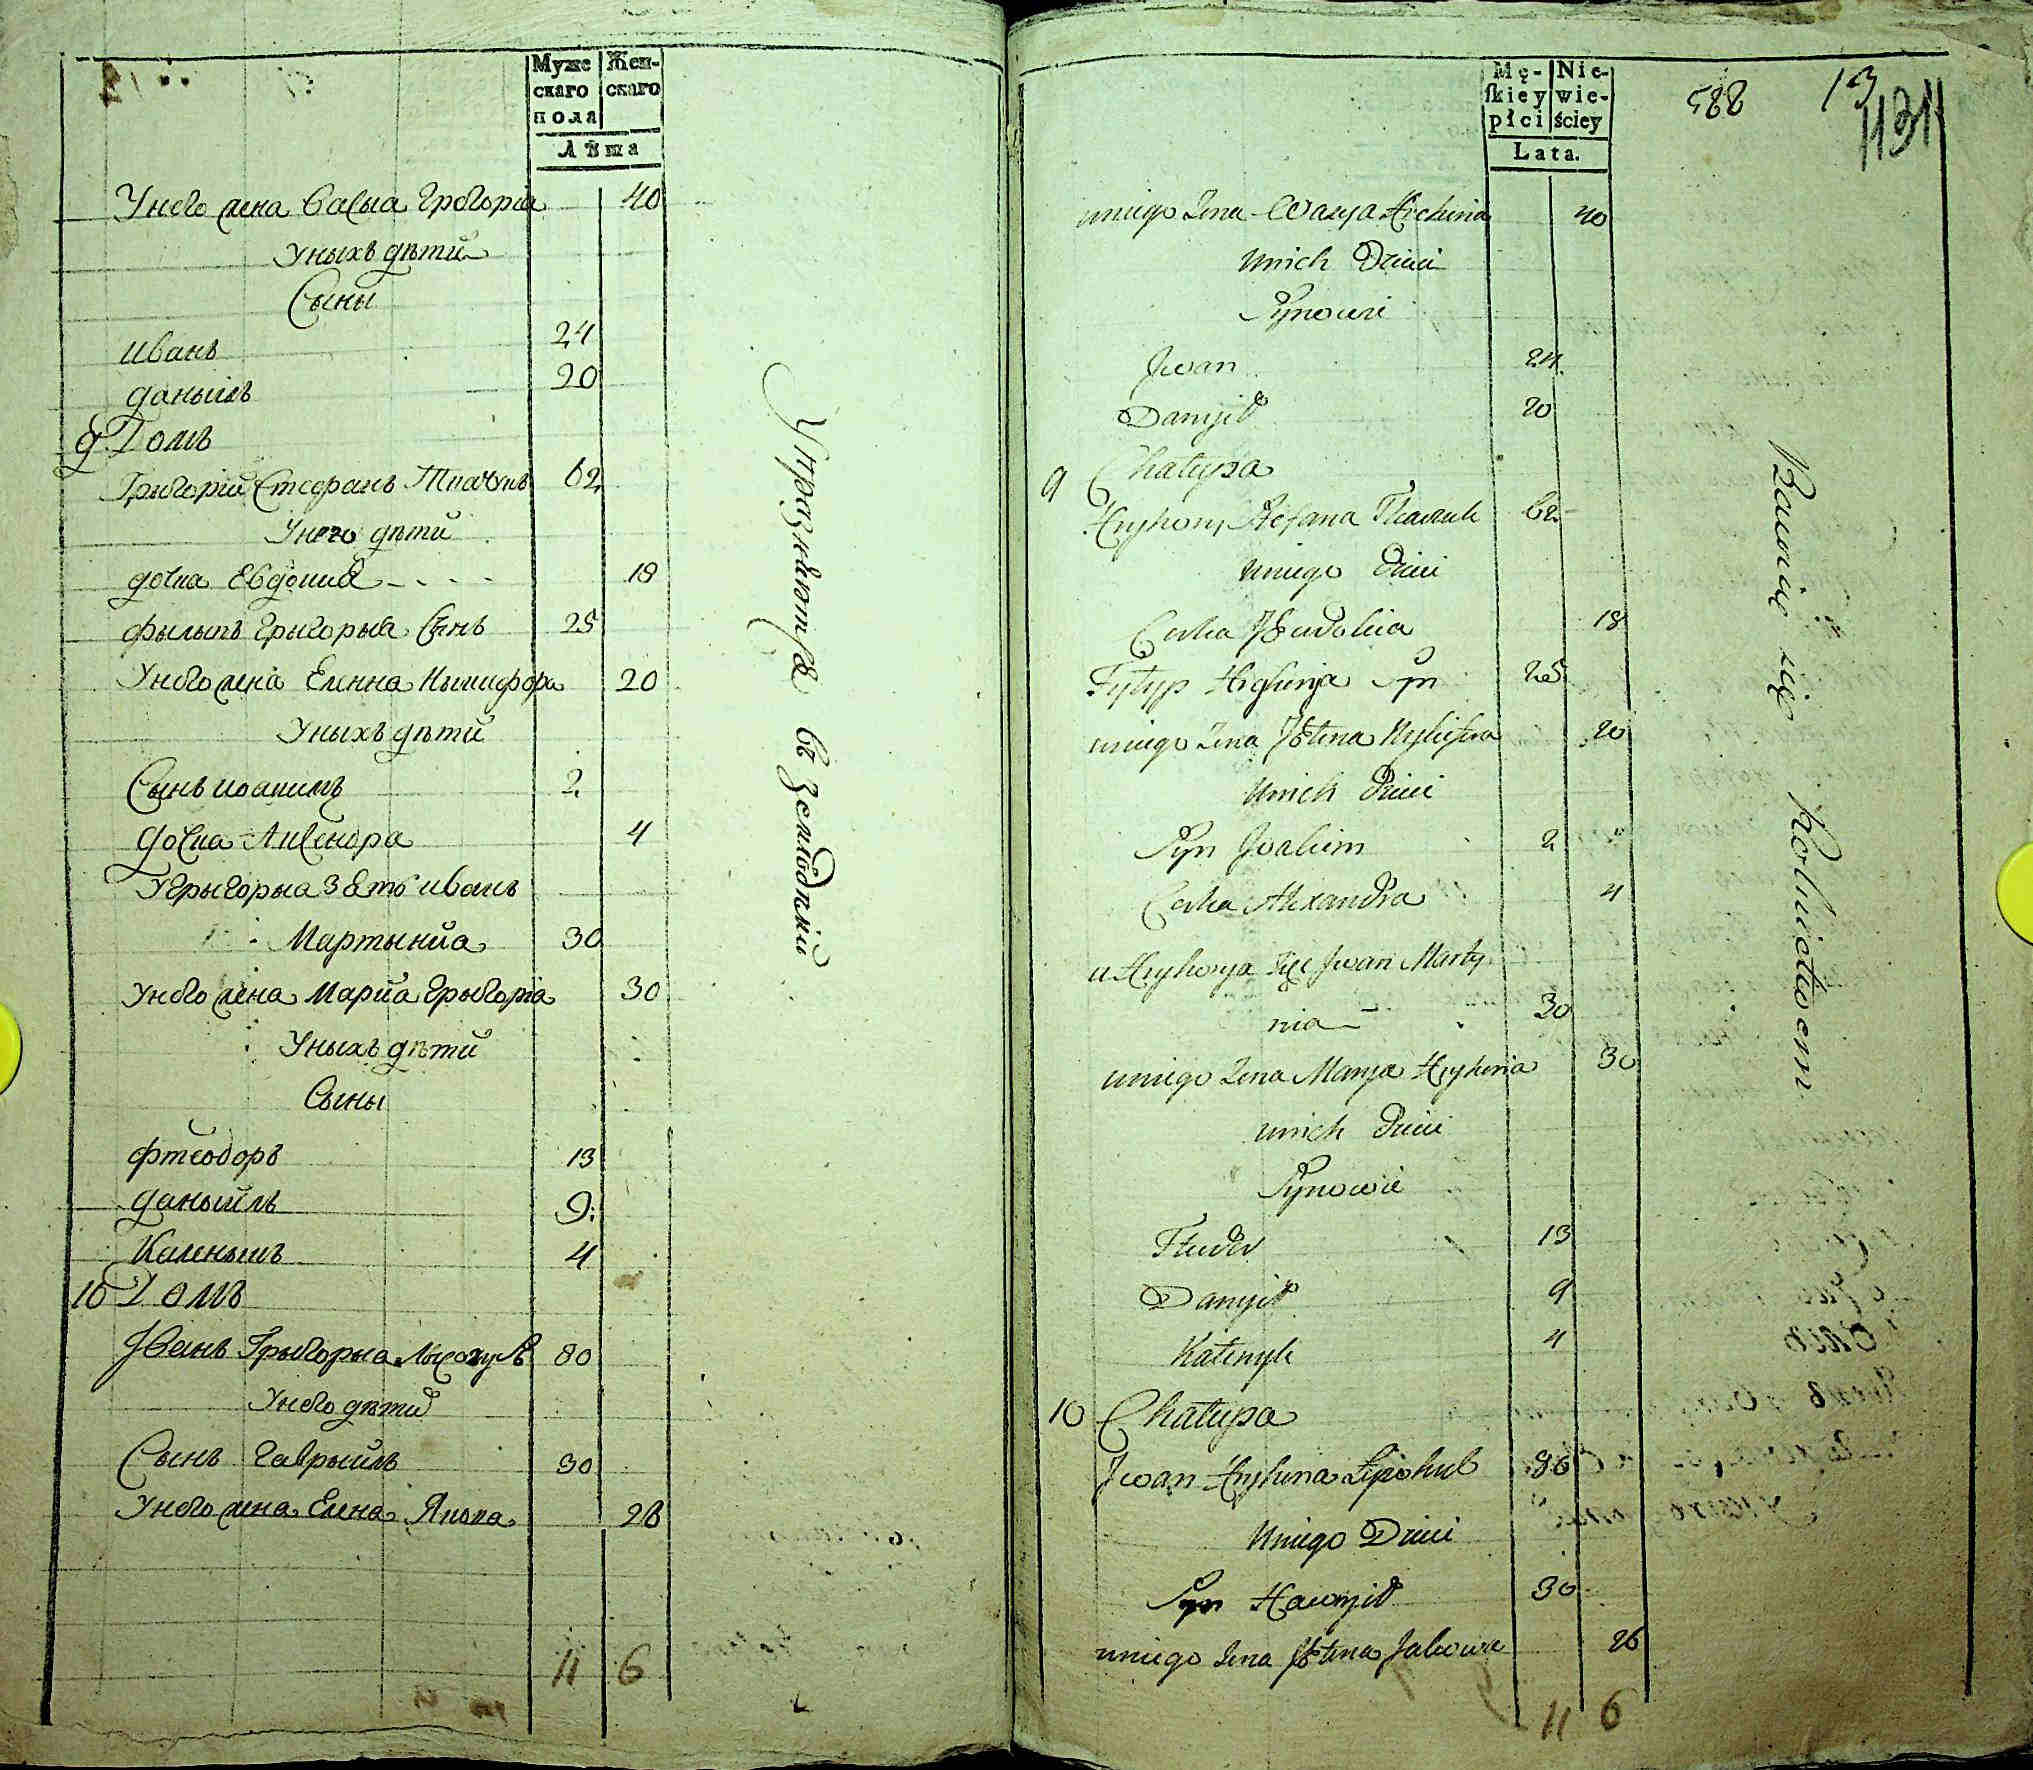 Муже Жен-
скаго скаго
пола
Лѣта
Унего жена Васка Григория 40
Уныхъ дѣти
Сыны
иванъ 24
даныилъ 20
9 Домъ
Григорий Стефанъ Ткачукъ 62
Унего дѣти
дочка Евдокия 18
Филыпъ Грыгорыя Сынъ 25
Унего жена Еленна Никифора 20
Уныхъ дѣти
Сынъ иоакимъ 2
дочка Алксендра 4
У Грыгорыя Зять иванъ
Мартыния 30
Унего жена Мария Грыгория 30
Уныхъ дѣти
Сыны
Фтеодоръ 13
даныилъ 9
Каленыкъ 4
10 Домъ
Иванъ Грыгорыя Лысогубъ 80
Унего дѣти
Сынъ Гаврыилъ 30
Унего жена Елена Якова 26
11 6
Упражняютъся въ земледѣлии
Mę- Nie-
ſkiey wie-
płci ściey
Lata.
588 13
1131
uniego Żena Waska Hrehoria 40
Unich Dzieci
Synowie
Jwan 24
Danyił 20
9 Chałupa
Hryhory Stefana Tkaczuk 62
Uniego Dzieci
Corka Jewdokia 18
Fyłyp Hryhorija Syn 25
uniego Żena Jełena Nykifora 20
Unich Dzieci
Syn Joakim 2
Corka Alexandra 4
u Hryhorya Zięć Jwan Marty
nia 30
uniego Żena Marya Hryhoria 30
unich Dzieci
Synowie
Fteodor 13
Danyił 9
Kałenyk 4
10 Chałupa
Jwan Hryhoria Łysohub 80
Uniego Dzieci
Syn Hawryił 30
uniego Żena Jełena Jakowa 26
11 6
Bawnią się Rolnictwem